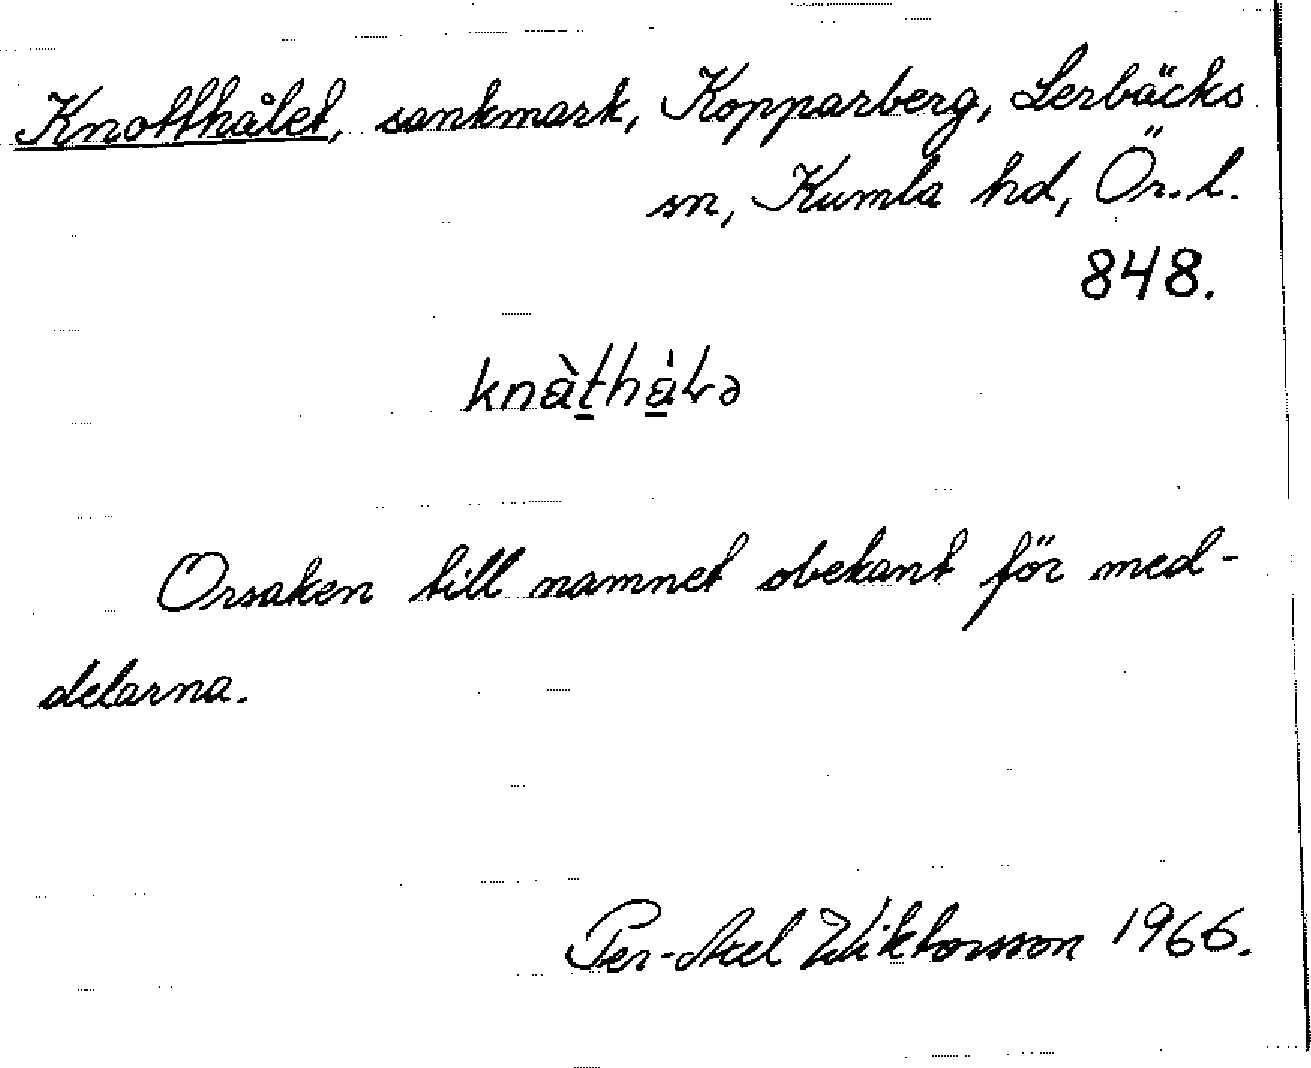 Knotthålet, sankmark, Kopparberg, Lerbäcks
sn, Kumla hd, Ör. l.
848.
knàt̲hȧ̲Lə
Orsaken till namnet obekant för med-
delarna.
Per-Axel Wiktorsson 1966.